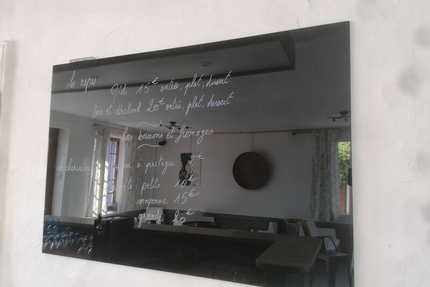 Les repas:
Midi 15€ entrée, plat, dessert
Soir et Weekend 20€ entrée, plat, dessert
hors boissons et fromages
à partager
petite 10€
moyenne 15€
grande 20€